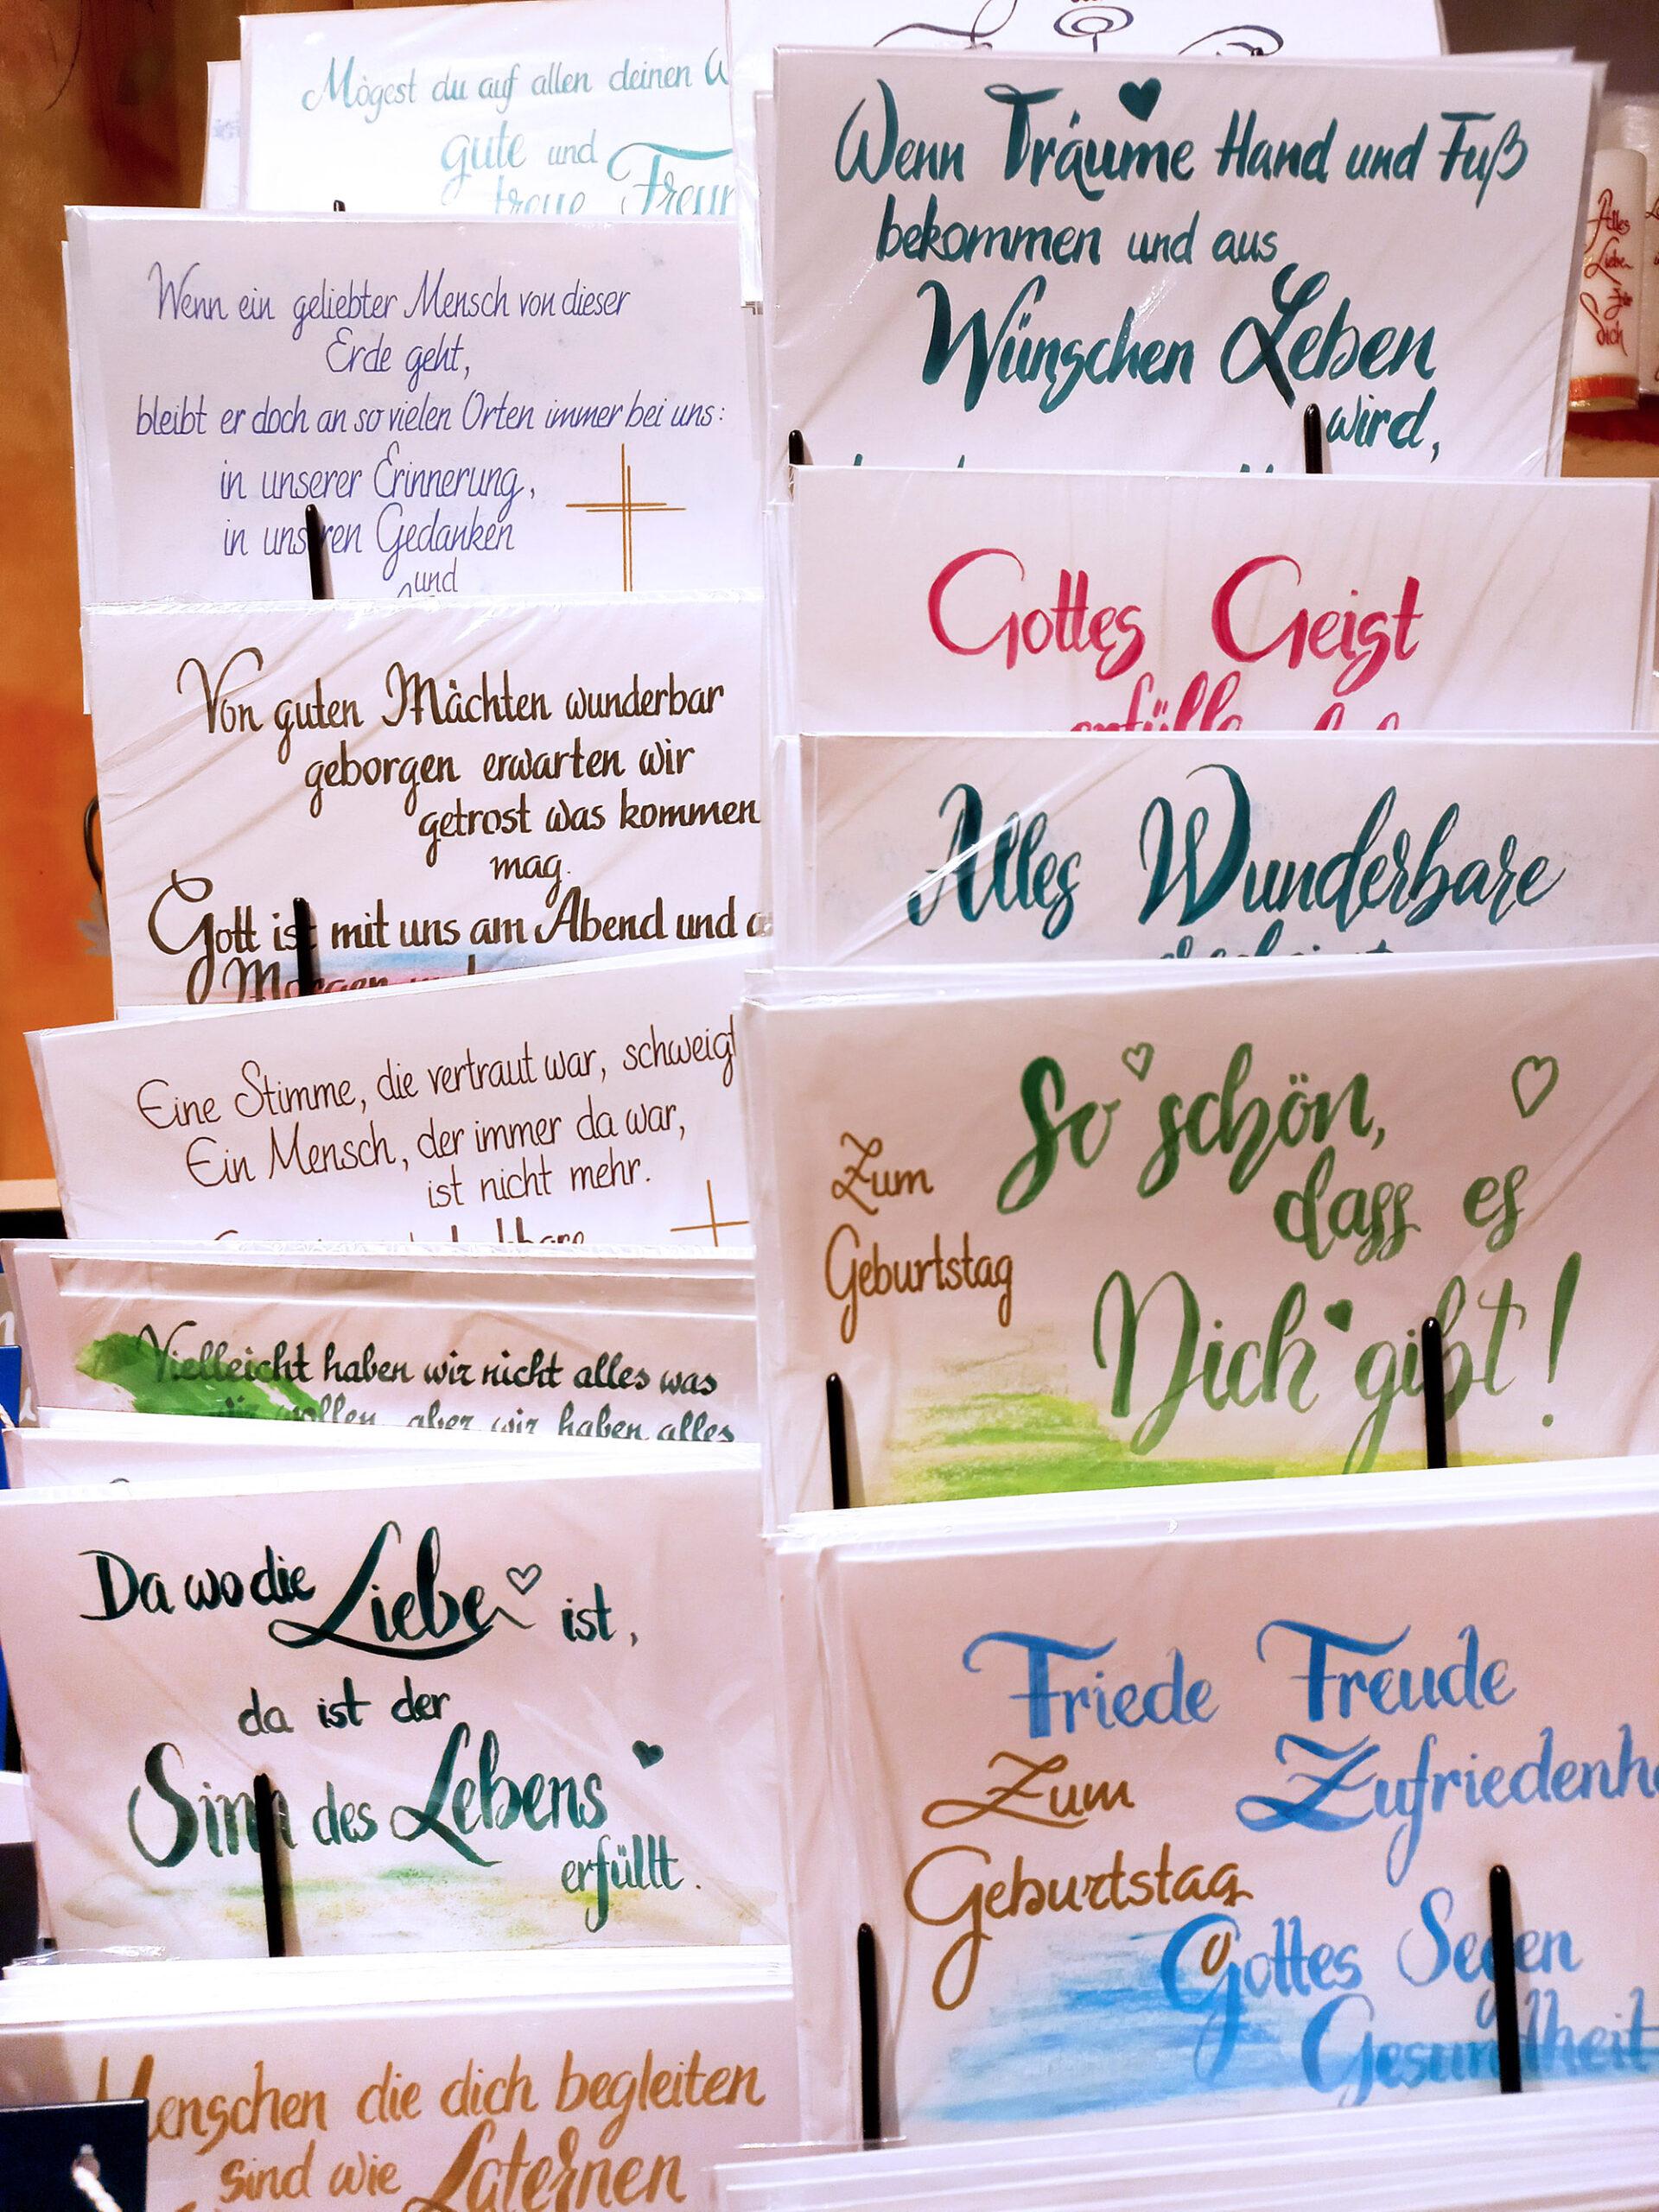 Mögest du auf allen deinen
gute und
treue
Wenn ein geliebter Mensch von dieser
Erde geht,
bleibt er doch an so vielen Orten immer bei uns:
in unserer Erinnerung,
in unseren Gedanken
und
Von guten Mächten wunderbar
geborgen erwarten wir
getrost was kommen
mag.
Gott ist mit uns am Abend und
Morgen
Eine Stimme, die vertraut war, schweigt
Ein Mensch, der immer da war,
ist nicht mehr.
Vielleicht haben wir nicht alles was
wir wollen, aber wir haben alles
Da wo die Liebe ist,
da ist der
Sinn des Lebens
erfüllt.
Menschen die dich begleiten
sind wie Laternen
Wenn Träume Hand und Fuß
bekommen und aus
Wünschen Leben
wird,
Gottes Geist
erfülle
Alles Wunderbare
Zum
Geburtstag
So schön,
dass es
Dich gibt!
Friede Freude
Zum
Geburtstag
Gottes Segen
Gesundheit
Alles
Liebe
für
Dich